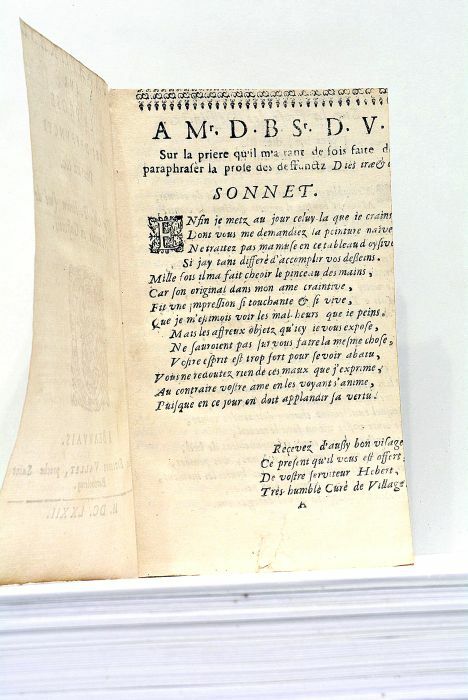 A Mr. D. B. Sr. D. V.
Sur la priere qu'il m'a tant de fois faite d
paraphraser la prose des deffunctz Dies iræ &
SONNET.
ENfin je metz au jour celuy-la que je crains
Dont vous me demandiez la peinture naïve
Ne traitez pas ma muse en ce tableau d'oysive
Si j'ay tant differé d'accomplir vos desseins.
Mille fois il ma fait cheoir le pinceau des mains,
Car son original dans mon ame craintive,
Fit vne impression si touchante & si vive,
Que je m'estimois voir les mal-heurs que je peins.
Mais les affreux objetz qu'icy ie vous expose,
Ne sauroient pas sur vous faire la mesme chose,
Vostre esprit est trop fort pour se voir abatu,
Vous ne redoutez rien de ces maux que j'exprime,
Au contraire vostre ame en les voyant s'anime,
Puisque en ce jour on doit applaudir sa vertu!
Recevez d'aussy bon visage
Ce present qu'il vous est offert,
De vostre serviteur Hebert,
Très humble Curé de Village.
A
BEAUVAIS,
VALLET,
M. DC. LXXII.